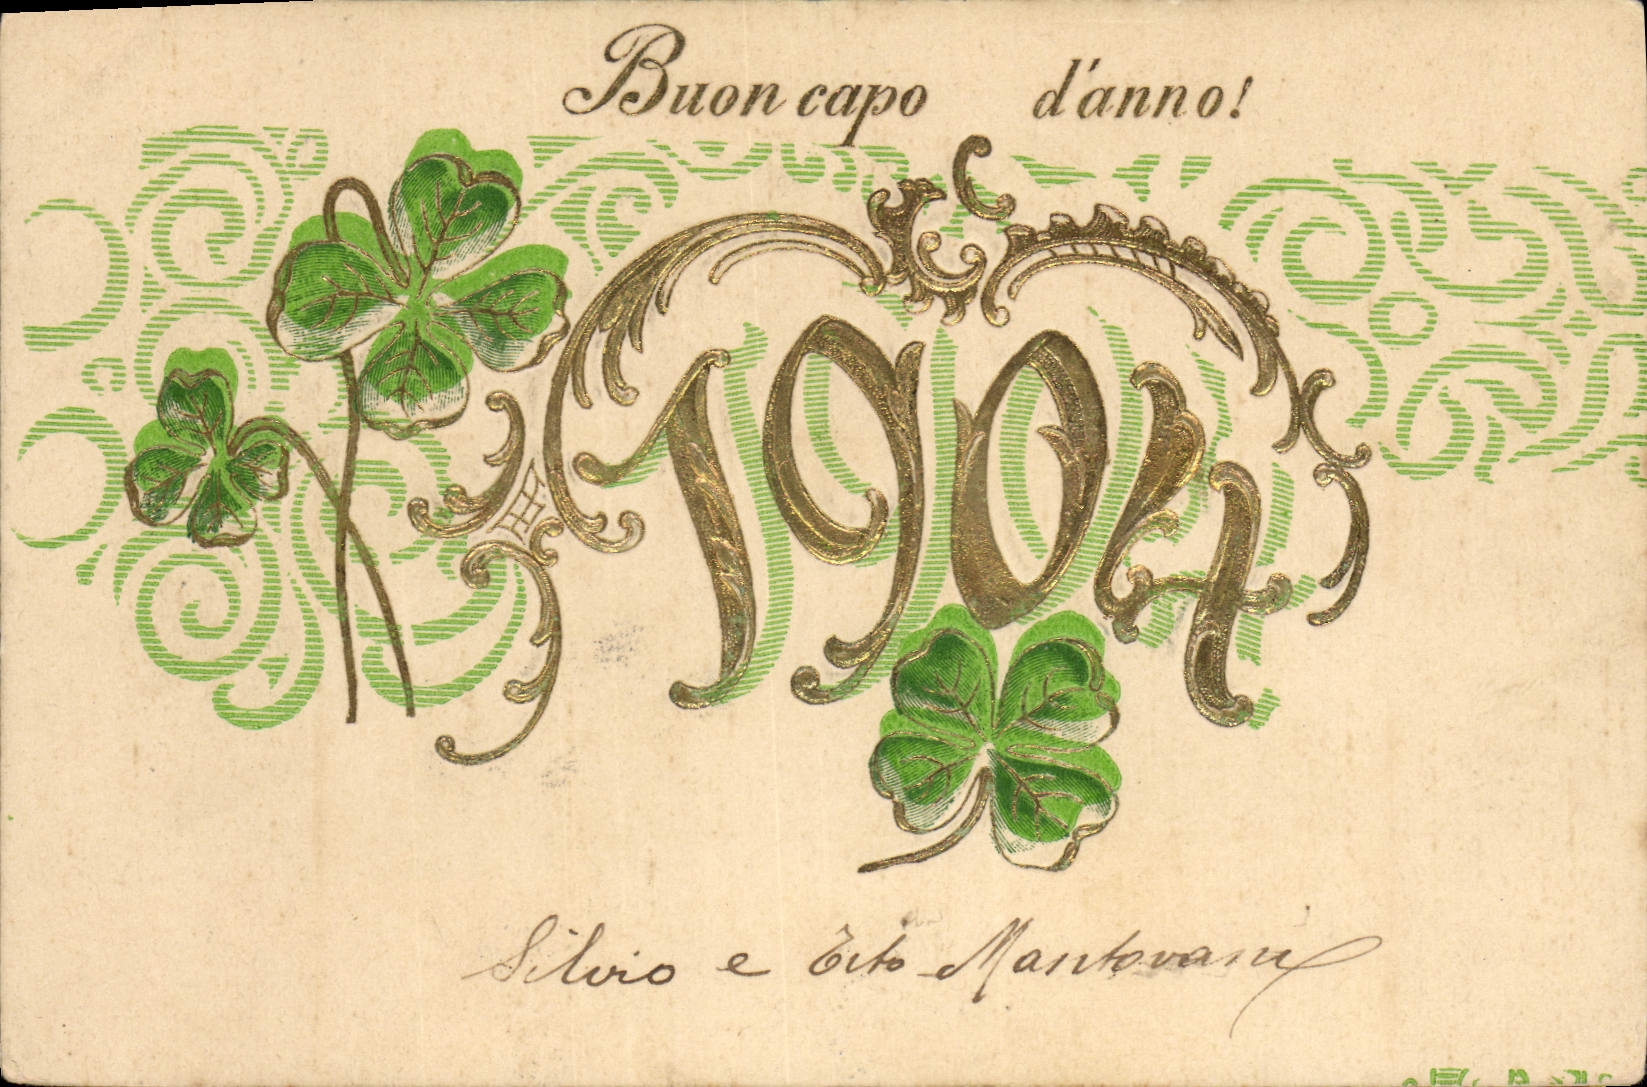 Buon capo d'anno!
1904
Silvio e Tito Mantovani